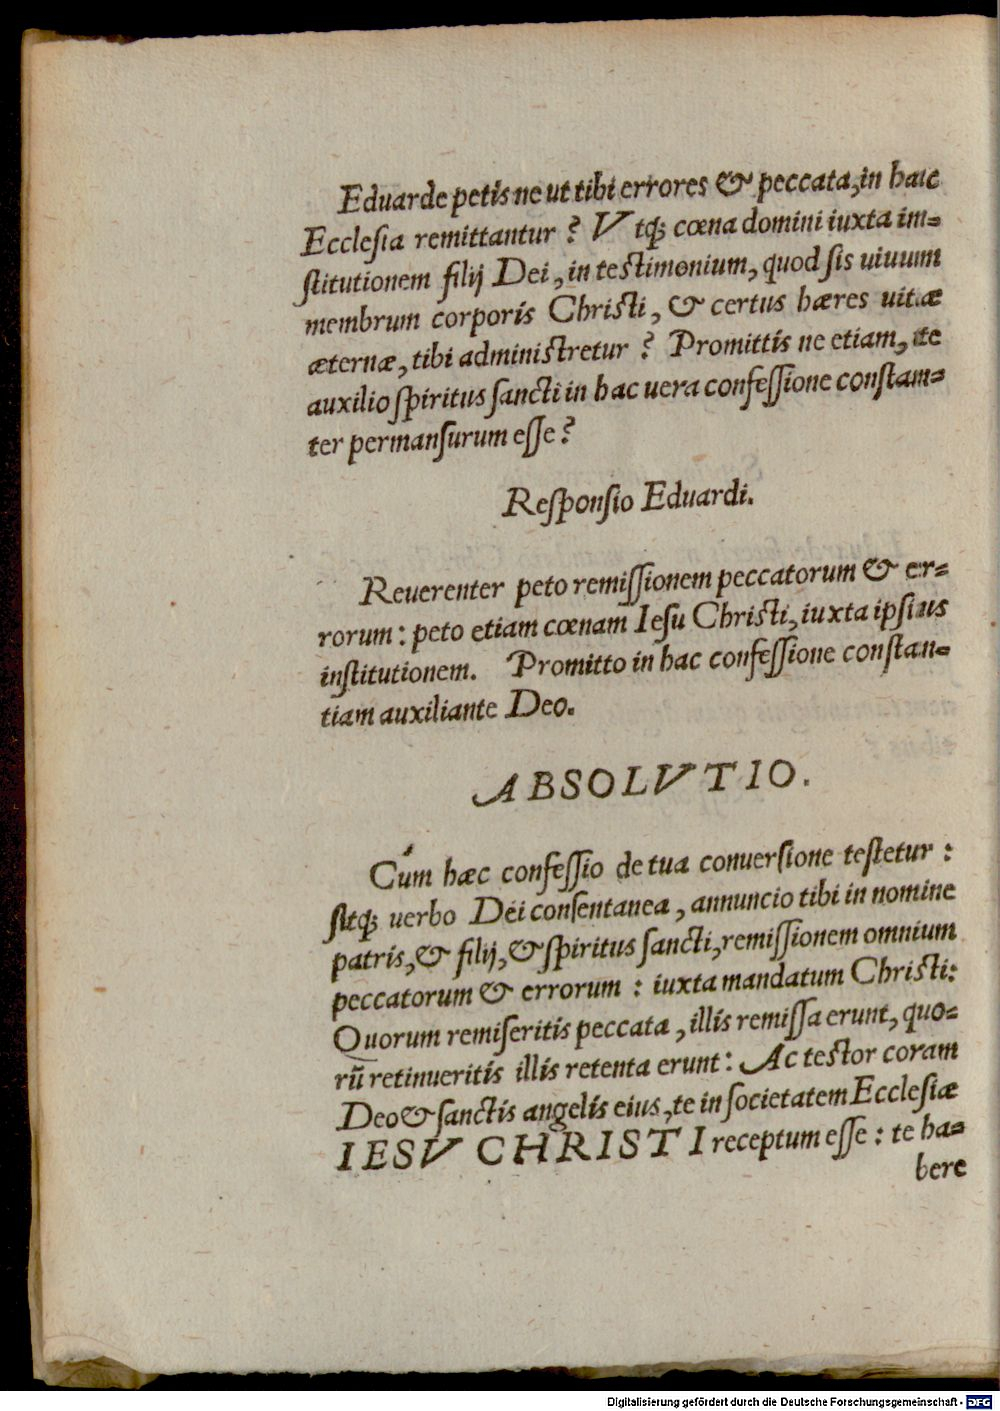 Eduarde petis ne ut tibi errores & peccata, in hac
Ecclesia remittantur? Vtq́; cœna domini iuxta in-
stitutionem filij Dei, in testimonium, quod sis uiuum
membrum corporis Christi, & certus hæres uitæ
æternæ, tibi administretur? Promittis ne etiam, te
auxilio spiritus sancti in hac uera confessione constan-
ter permansurum esse?
Responsio Eduardi.
Reuerenter peto remissionem peccatorum & er-
rorum: peto etiam cœnam Iesu Christi, iuxta ipsius
institutionem. Promitto in hac confessione constan-
tiam auxiliante Deo.
ABSOLVTIO.
Cúm hæc confessio de tua conuersione testetur:
sitq́; uerbo Dei consentanea, annuncio tibi in nomine
patris, & filij, & spiritus sancti, remissionem omnium
peccatorum & errorum: iuxta mandatum Christi:
Quorum remiseritis peccata, illis remissa erunt, quo-
rũ retinueritis illis retenta erunt: Ac testor coram
Deo & sanctis angelis eius, te in societatem Ecclesiæ
IESV CHRISTI receptum esse: te ha-
bere
Digitalisierung gefördert durch die Deutsche Forschungsgemeinschaft - DFG